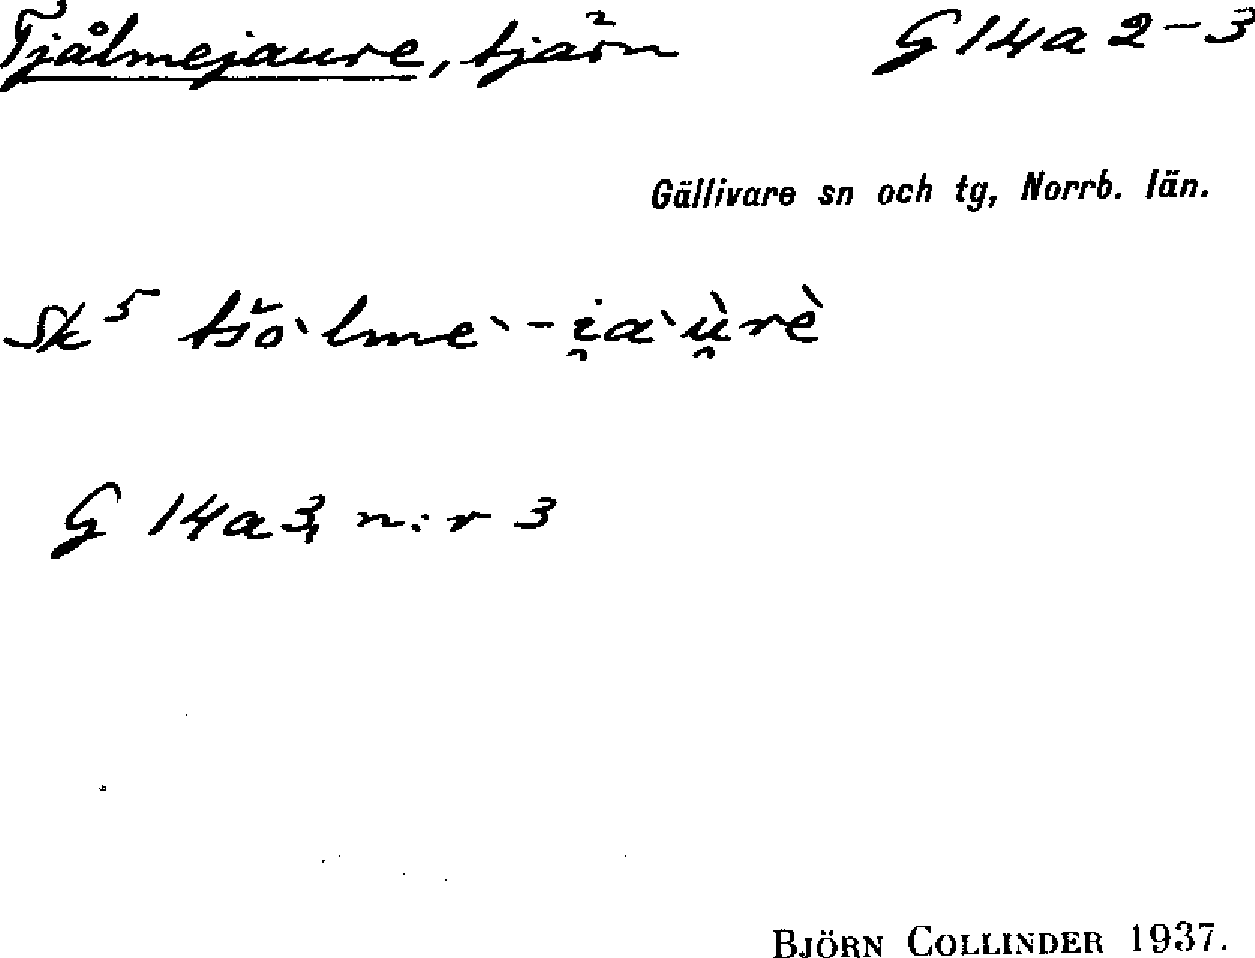 Tjålmejaure, tjärn G 14 a 2-3
Gällivare sn och tg, Norrb. län.
Sk 5 tšo̊ˋlmeˋ-i̯aˋù̯rè
G 14 a 3, n:r 3
BJÖRN COLLINDER 1937.